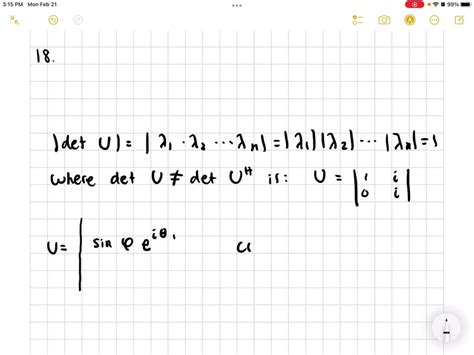 3:15 PM Mon Feb 21
99%
18.
|det U| = |λ₁ · λ₂ ··· λₙ| = |λ₁||λ₂| ··· |λₙ| = 1
where det U ≠ det Uᴴ is: U = | 1 i |
| 0 i |
U = | sin φ e^{iθ₁} c